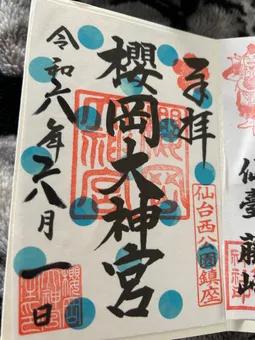 奉拝
仙台西公園鎮座
櫻岡大神宮
令和六年六月一日
仙臺藤崎